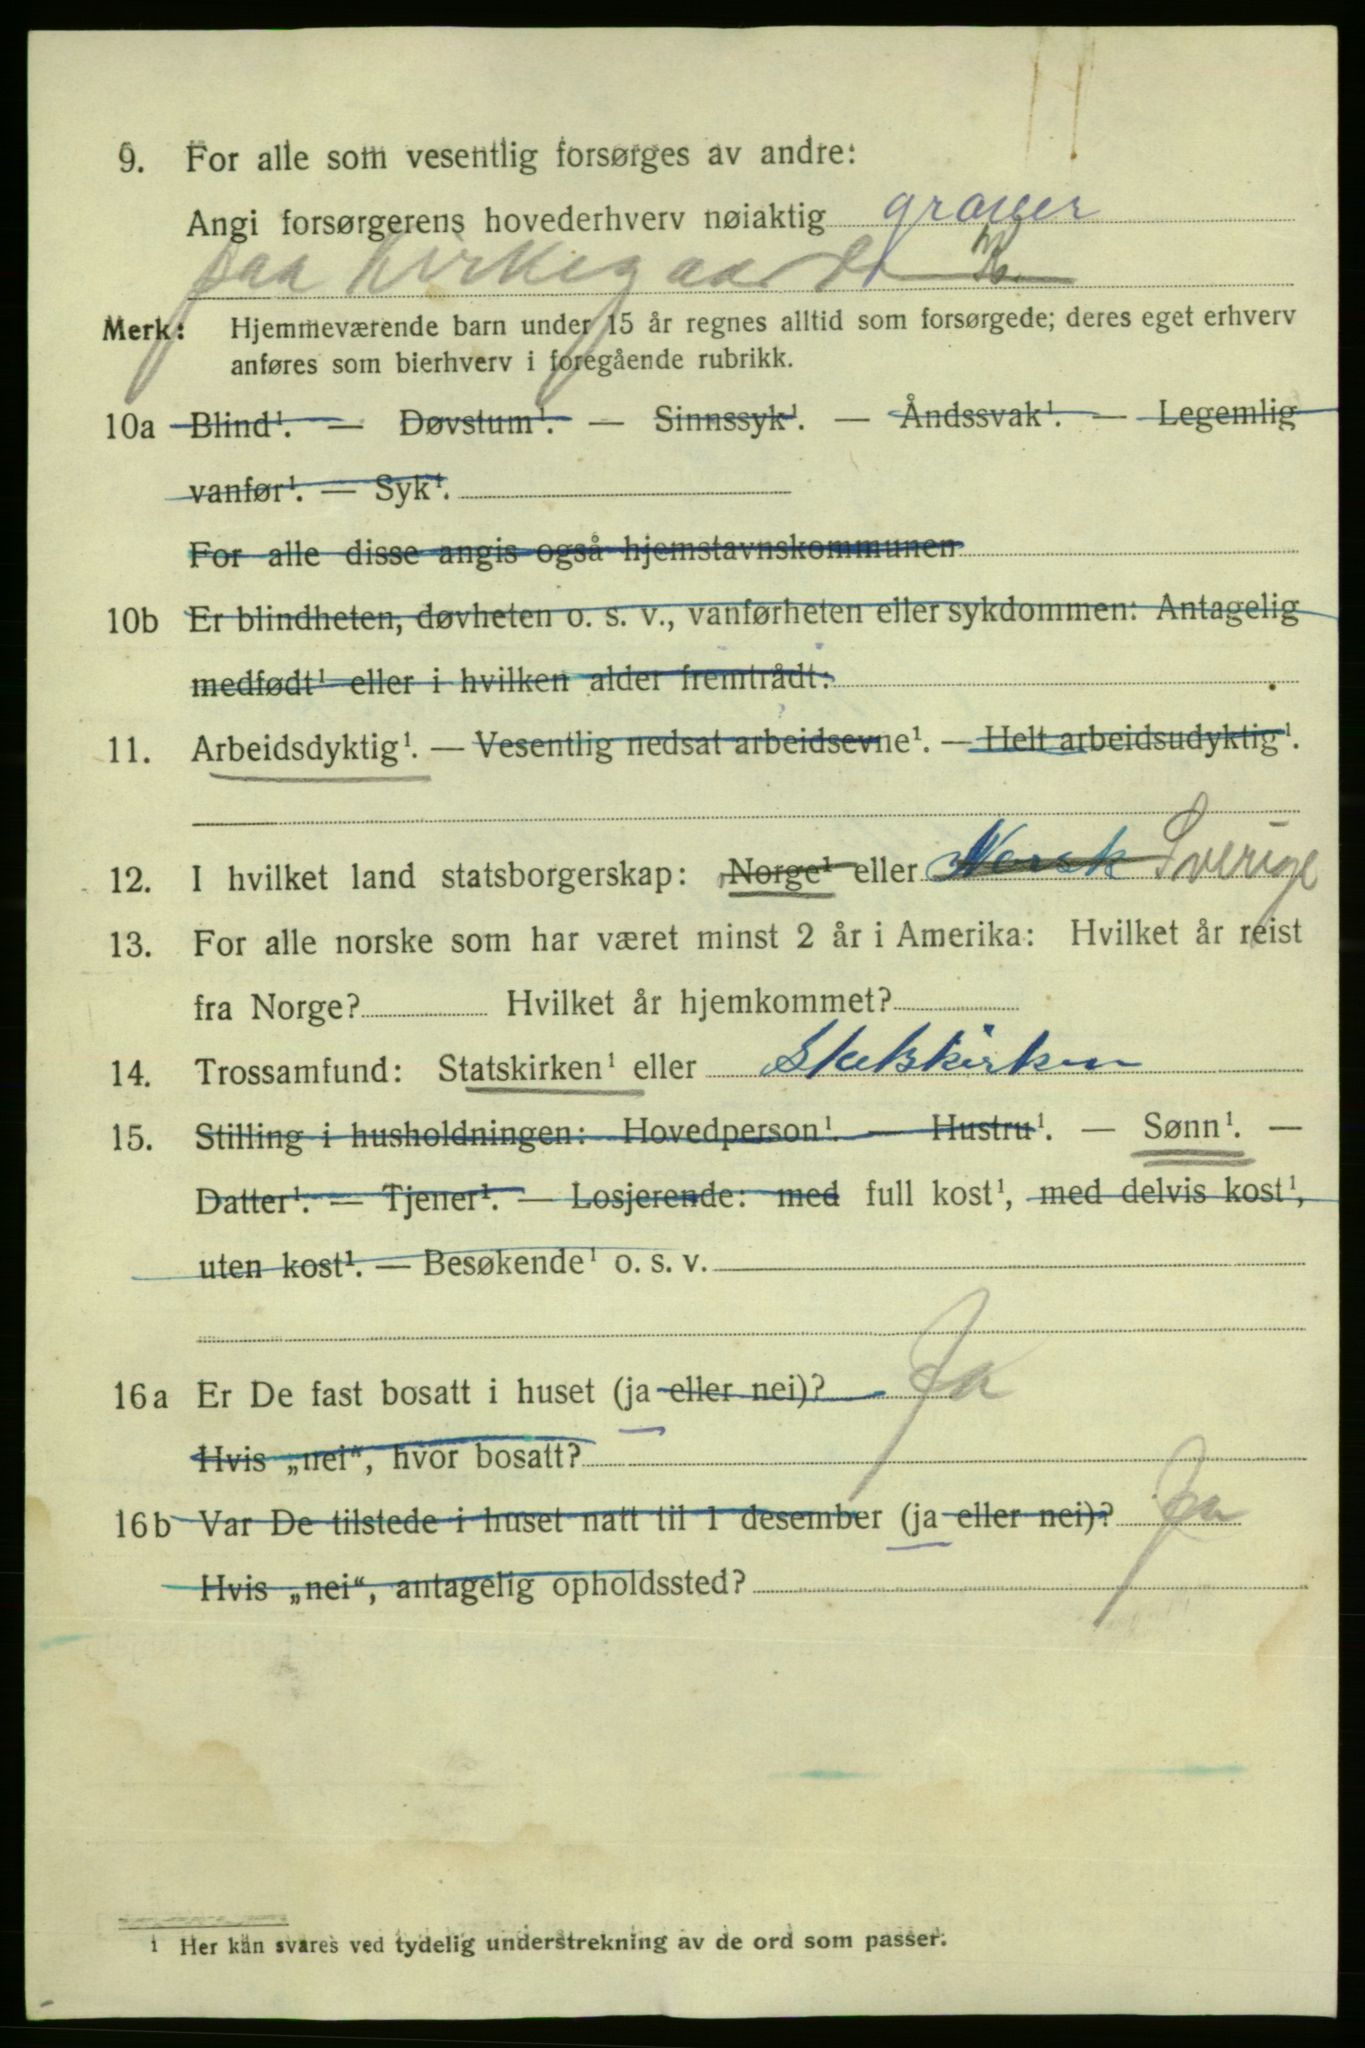 9. For alle som vesentlig forsørges av andre:
Angi forsørgerens hovederhverv nøiaktig graver
paa Kirkegaard
Merk: Hjemmeværende barn under 15 år regnes alltid som forsørgede; deres eget erhverv
anføres som bierhverv i foregående rubrikk.
10a Blind¹. — Døvstum¹. — Sinnssyk¹. — Åndssvak¹. — Legemlig
vanfør¹. — Syk¹.
For alle disse angis også hjemstavnskommunen
10b Er blindheten, døvheten o. s. v., vanførheten eller sykdommen: Antagelig
medfødt¹ eller i hvilken alder fremtrådt:
11. Arbeidsdyktig¹. — Vesentlig nedsat arbeidsevne¹. — Helt arbeidsudyktig¹.
12. I hvilket land statsborgerskap: Norge¹ eller Norsk Sverige
13. For alle norske som har været minst 2 år i Amerika: Hvilket år reist
fra Norge? Hvilket år hjemkommet?
14. Trossamfund: Statskirken¹ eller Statskirken
15. Stilling i husholdningen: Hovedperson¹. — Hustru¹. — Sønn¹. —
Datter¹. — Tjener¹. — Losjerende: med full kost¹, med delvis kost¹,
uten kost¹. — Besøkende¹ o. s. v.
16a Er De fast bosatt i huset (ja eller nei)? Ja
Hvis „nei“, hvor bosatt?
16b Var De tilstede i huset natt til 1 desember (ja eller nei)? Ja
Hvis „nei“, antagelig opholdssted?
1 Her kan svares ved tydelig understrekning av de ord som passer.